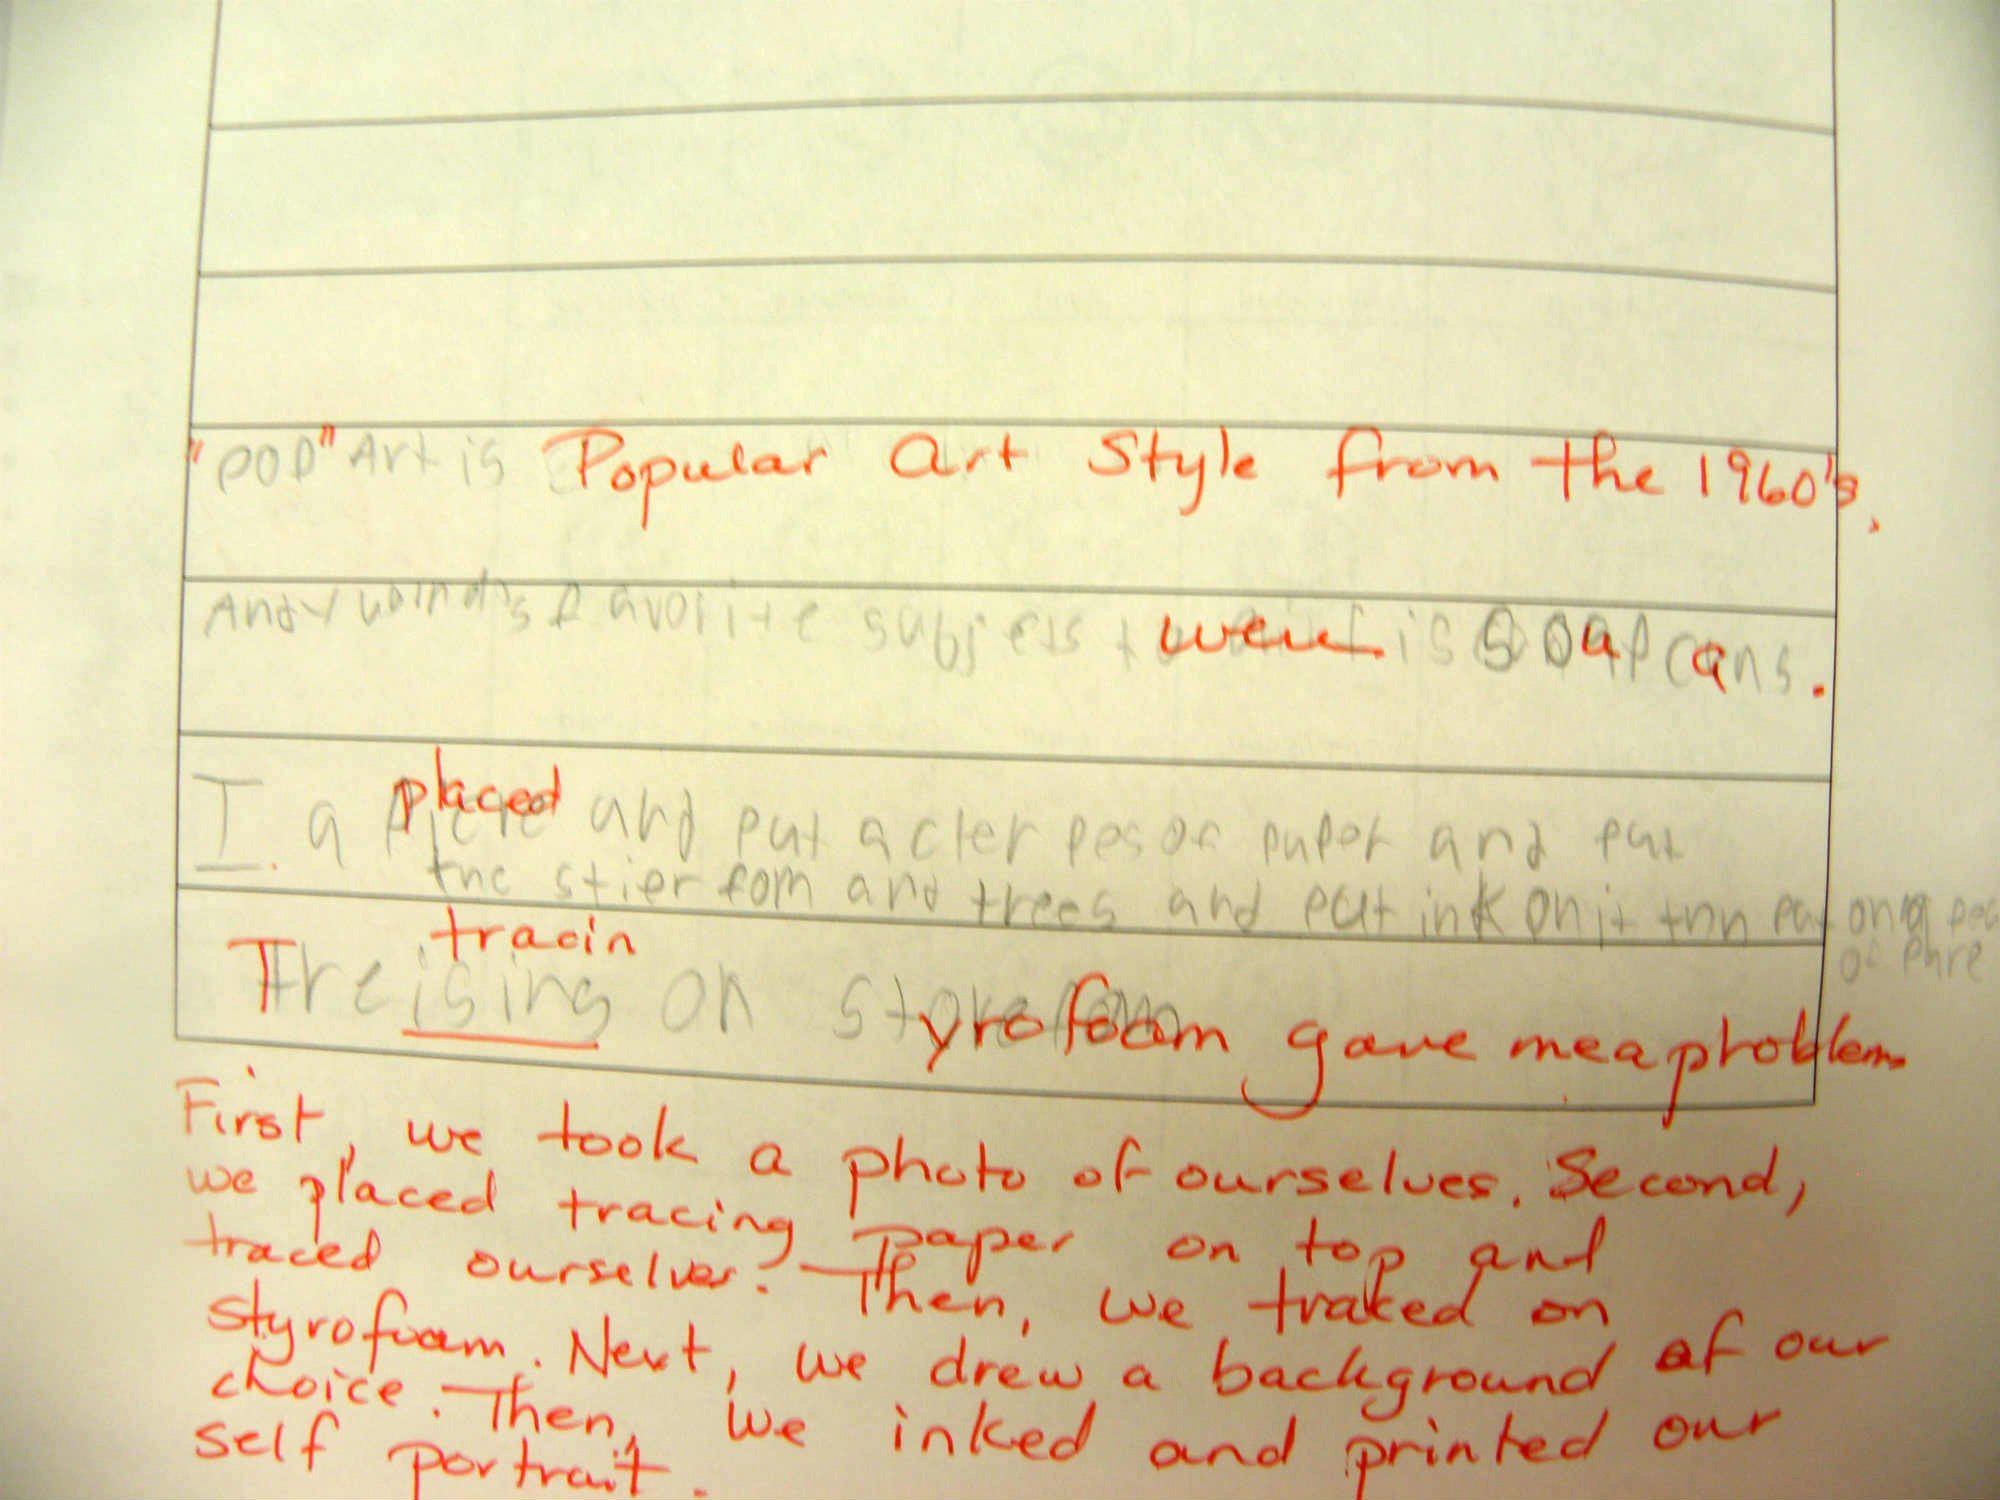 "POP" Art is Popular Art Style from the 1960's.
Andy favorite subjects were is SOap cans.
placed
I. a and put a cler pes of puper and put
the stierfom and trees and put ink on it thn put on a pec
of pure
tracin
Treising on styrofoam gave me a problem.
First, we took a photo of ourselves. Second,
we placed tracing paper on top and
traced ourselves. Then, we traced on
styrofoam. Next, we drew a background of our
choice. Then, we inked and printed our
self portrait.